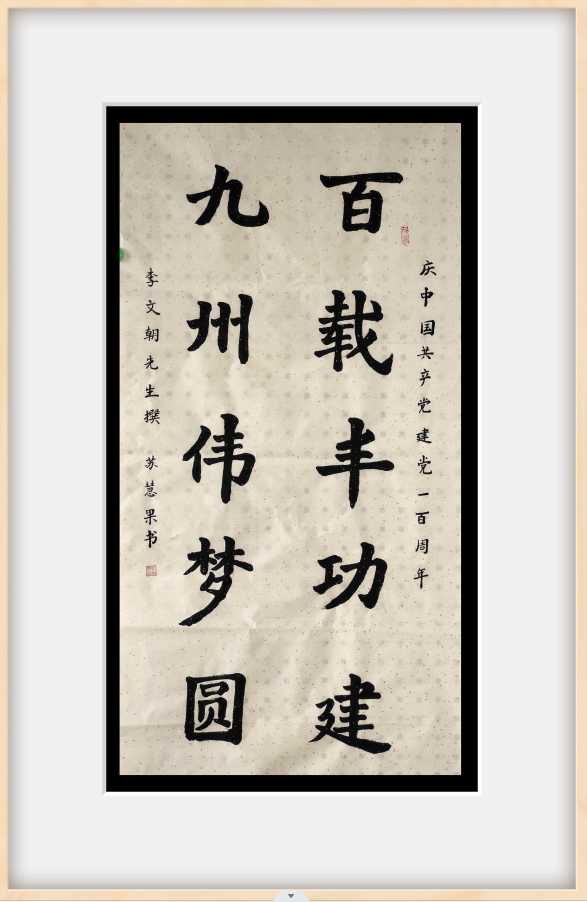 庆中国共产党建党一百周年
百载丰功建
九州伟梦圆
李文朝先生撰 苏慧果书